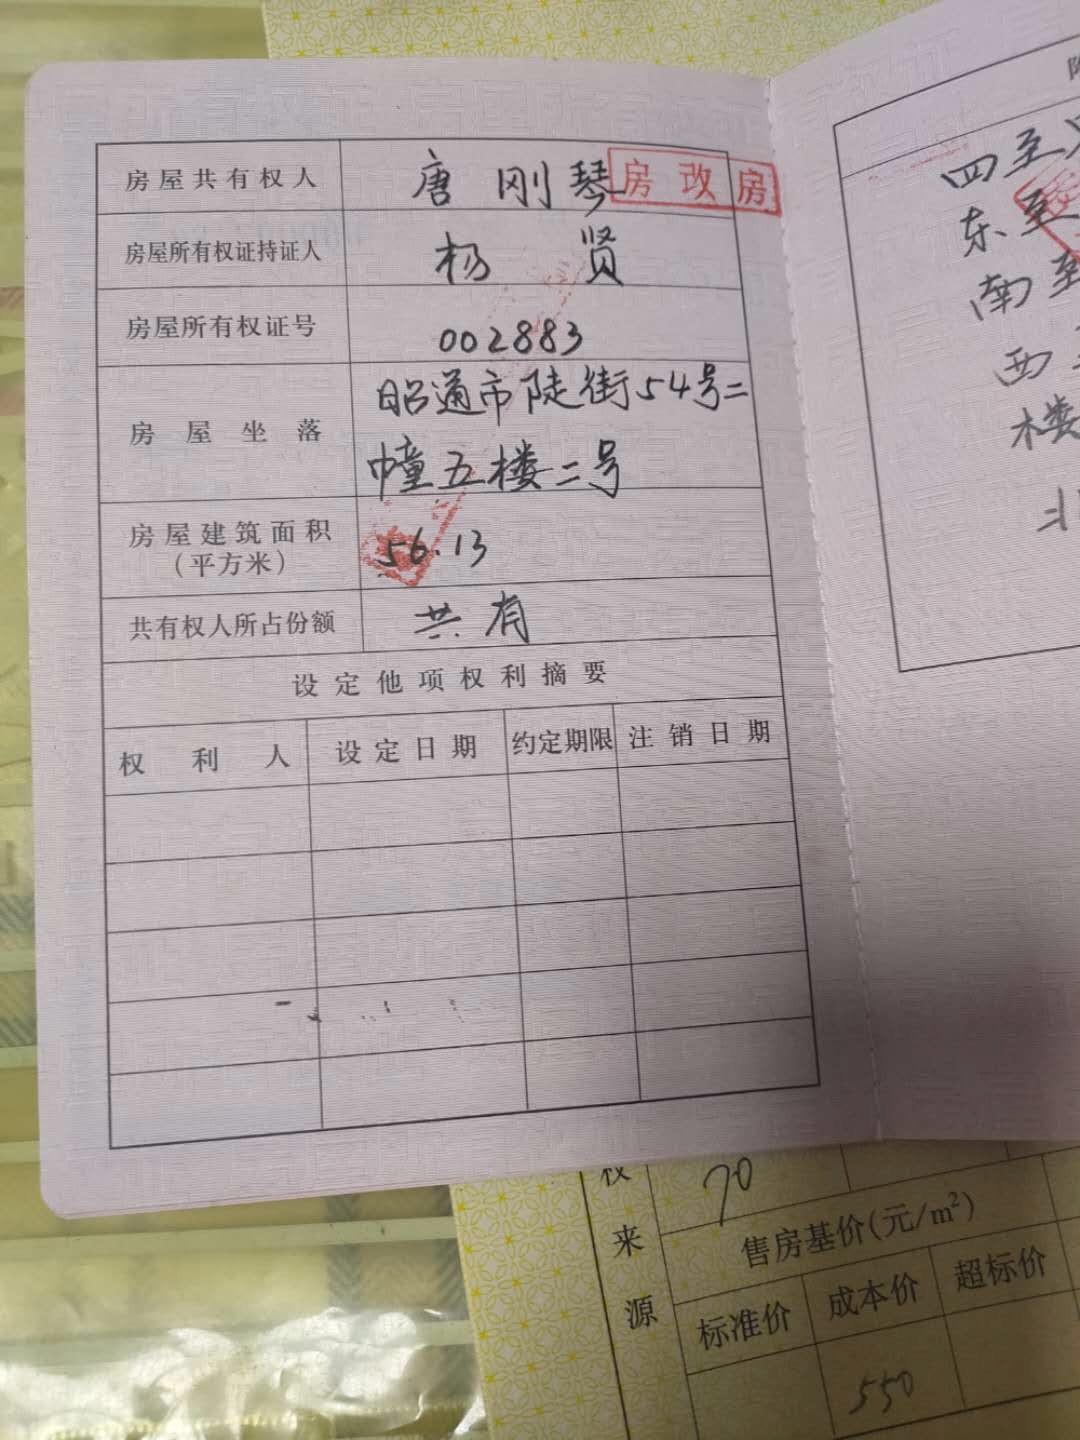 房屋共有权人 唐刚琴 房改房
房屋所有权证持证人 杨贤
房屋所有权证号 002883
房屋坐落 昭通市陡街54号二
幢五楼二号
房屋建筑面积 56.13
(平方米)
共有权人所占份额 共有
设定他项权利摘要
权利人 设定日期 约定期限 注销日期
四至
东至
南至
西
楼
权 70
来 售房基价(元/m²)
源 标准价 成本价 超标价
550